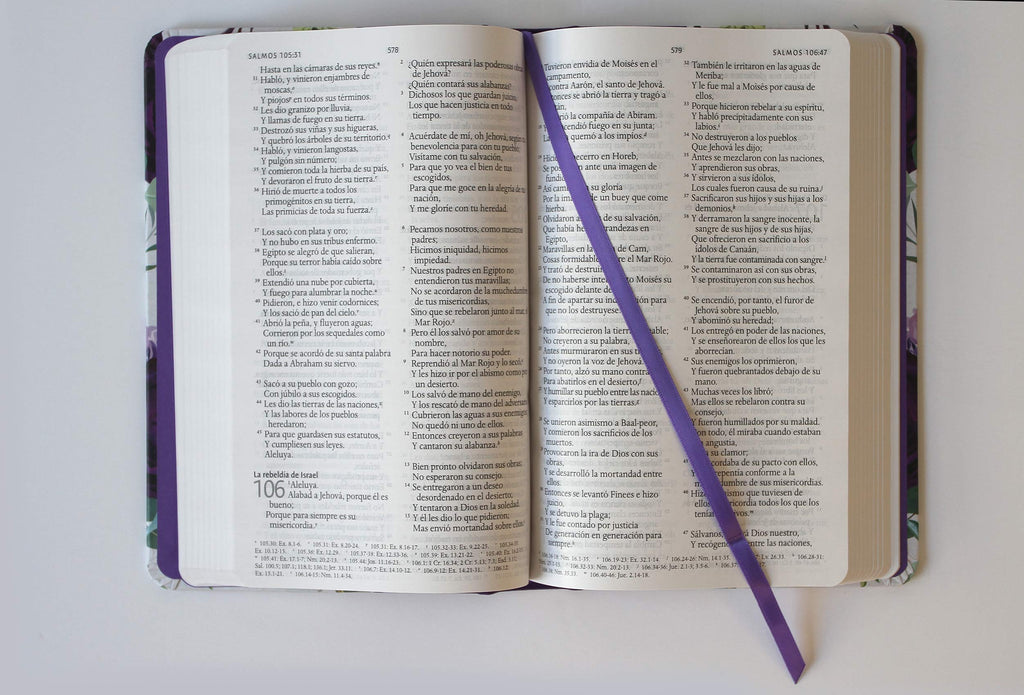 SALMOS 105:31
578
Hasta en las cámaras de sus reyes.
31 Habló, y vinieron enjambres de
moscas,
Y piojos en todos sus términos.
32 Les dio granizo por lluvia,
Y llamas de fuego en su tierra.
33 Destrozó sus viñas y sus higueras,
Y quebró los árboles de su territorio.
34 Habló, y vinieron langostas,
Y pulgón sin número;
35 Y comieron toda la hierba de su país,
Y devoraron el fruto de su tierra.
36 Hirió de muerte a todos los
primogénitos en su tierra,
Las primicias de toda su fuerza.
37 Los sacó con plata y oro;
Y no hubo en sus tribus enfermo.
38 Egipto se alegró de que salieran,
Porque su terror había caído sobre
ellos.
39 Extendió una nube por cubierta,
Y fuego para alumbrar la noche.
40 Pidieron, e hizo venir codornices;
Y los sació de pan del cielo.
41 Abrió la peña, y fluyeron aguas;
Corrieron por los sequedales como
un río.
42 Porque se acordó de su santa palabra
Dada a Abraham su siervo.
43 Sacó a su pueblo con gozo;
Con júbilo a sus escogidos.
44 Les dio las tierras de las naciones,
Y las labores de los pueblos
heredaron;
45 Para que guardasen sus estatutos,
Y cumpliesen sus leyes.
Aleluya.
La rebeldía de Israel
106 1 Aleluya.
Alabad a Jehová, porque él es
bueno;
Porque para siempre es su
misericordia.
2 ¿Quién expresará las poderosas
de Jehová?
¿Quién contará sus alabanzas?
3 Dichosos los que guardan juicio,
Los que hacen justicia en todo
tiempo.
4 Acuérdate de mí, oh Jehová, según tu
benevolencia para con tu pueblo;
Visítame con tu salvación,
5 Para que yo vea el bien de tus
escogidos,
Para que me goce en la alegría de tu
nación,
Y me gloríe con tu heredad.
6 Pecamos nosotros, como nuestros
padres;
Hicimos iniquidad, hicimos
impiedad.
7 Nuestros padres en Egipto no
entendieron tus maravillas;
No se acordaron de la muchedumbre
de tus misericordias,
Sino que se rebelaron junto al mar, el
Mar Rojo.
8 Pero él los salvó por amor de su
nombre,
Para hacer notorio su poder.
9 Reprendió al Mar Rojo y lo secó,
Y les hizo ir por el abismo como por
un desierto.
10 Los salvó de mano del enemigo,
Y los rescató de mano del adversario.
11 Cubrieron las aguas a sus enemigos;
No quedó ni uno de ellos.
12 Entonces creyeron a sus palabras
Y cantaron su alabanza.
13 Bien pronto olvidaron sus obras;
No esperaron su consejo.
14 Se entregaron a un deseo
desordenado en el desierto;
Y tentaron a Dios en la soledad.
15 Y él les dio lo que pidieron;
Mas envió mortandad sobre ellos.
579
SALMOS 106:47
Tuvieron envidia de Moisés en el
campamento,
contra Aarón, el santo de Jehová.
Entonces se abrió la tierra y tragó a
la compañía de Abiram.
fuego en su junta;
quemó a los impíos.
becerro en Horeb,
ante una imagen de
Así su gloria
Por la de un buey que come
hierba.
Olvidaron de su salvación,
Que había grandezas en
Egipto,
Maravillas en la de Cam,
Cosas formidables el Mar Rojo.
Y trató de destruir
De no haberse Moisés su
escogido delante de
A fin de apartar su indignación para
que no los destruyese.
Pero aborrecieron la tierra
No creyeron a su palabra,
Antes murmuraron en sus
Y no oyeron la voz de Jehová.
Por tanto, alzó su mano contra
Para abatirlos en el desierto,
Y humillar su pueblo entre las
Y esparcirlos por las tierras.
Se unieron asimismo a Baal-peor,
Y comieron los sacrificios de los
muertos.
Provocaron la ira de Dios con sus
obras,
Y se desarrolló la mortandad entre
ellos.
Entonces se levantó Finees e hizo
juicio,
Y se detuvo la plaga;
Y le fue contado por justicia
De generación en generación para
siempre.
32 También le irritaron en las aguas de
Meriba;
Y le fue mal a Moisés por causa de
ellos,
33 Porque hicieron rebelar a su espíritu,
Y habló precipitadamente con sus
labios.
34 No destruyeron a los pueblos
Que Jehová les dijo;
35 Antes se mezclaron con las naciones,
Y aprendieron sus obras,
36 Y sirvieron a sus ídolos,
Los cuales fueron causa de su ruina.
37 Sacrificaron sus hijos y sus hijas a los
demonios,
38 Y derramaron la sangre inocente, la
sangre de sus hijos y de sus hijas,
Que ofrecieron en sacrificio a los
ídolos de Canaán,
Y la tierra fue contaminada con sangre.
39 Se contaminaron así con sus obras,
Y se prostituyeron con sus hechos.
40 Se encendió, por tanto, el furor de
Jehová sobre su pueblo,
Y abominó su heredad;
41 Los entregó en poder de las naciones,
Y se enseñorearon de ellos los que les
aborrecían.
42 Sus enemigos los oprimieron,
Y fueron quebrantados debajo de su
mano.
43 Muchas veces los libró;
Mas ellos se rebelaron contra su
consejo,
Y fueron humillados por su maldad.
Con todo, él miraba cuando estaban
en angustia,
su clamor;
de su pacto con ellos,
conforme a la
muchedumbre de sus misericordias.
Hizo que tuviesen de
misericordia todos los que los
47 Sálvanos, Dios nuestro,
Y recógenos entre las naciones,